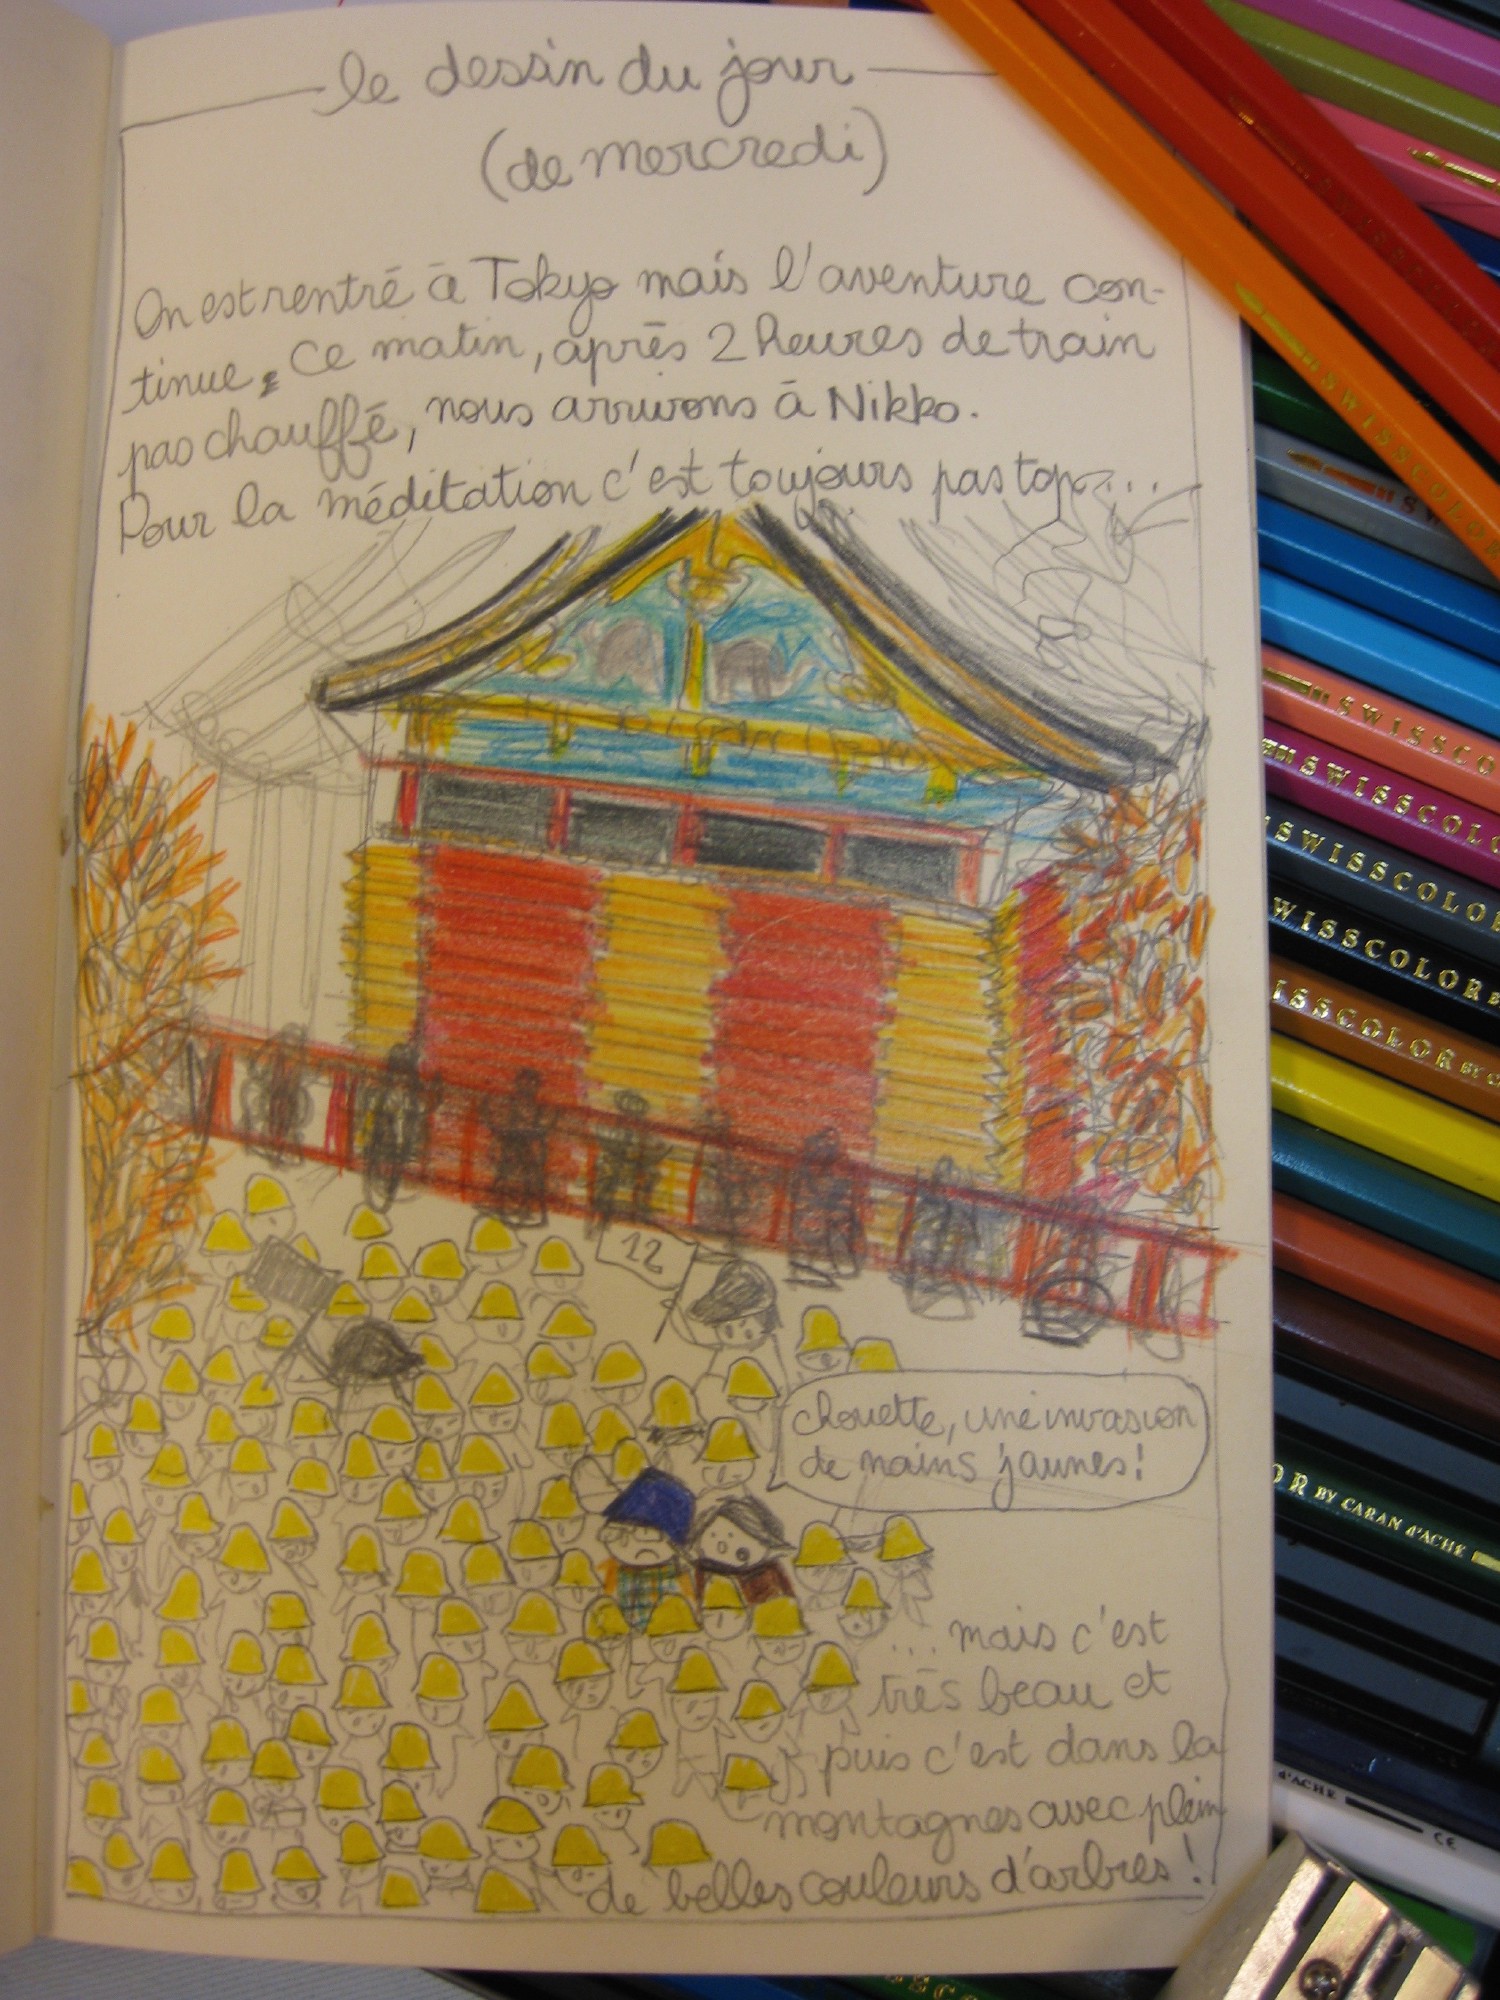 le dessin du jour
(de mercredi)
On est rentré à Tokyo mais l'aventure con-
tinue. Ce matin, après 2 heures de train
pas chauffé, nous arrivons à Nikko.
Pour la méditation c'est toujours pas top...
12
chouette, une invasion
de nains jaunes!
...mais c'est
très beau et
puis c'est dans la
montagnes avec plein
de belles couleurs d'arbres!
SWISSCOLOR
SWISSCO
SWISSCOL
SWISSCOLO
WISSCOLOR
ISSCOLOR BY C
OR BY CARAN d'ACHE
d'ACHE CE